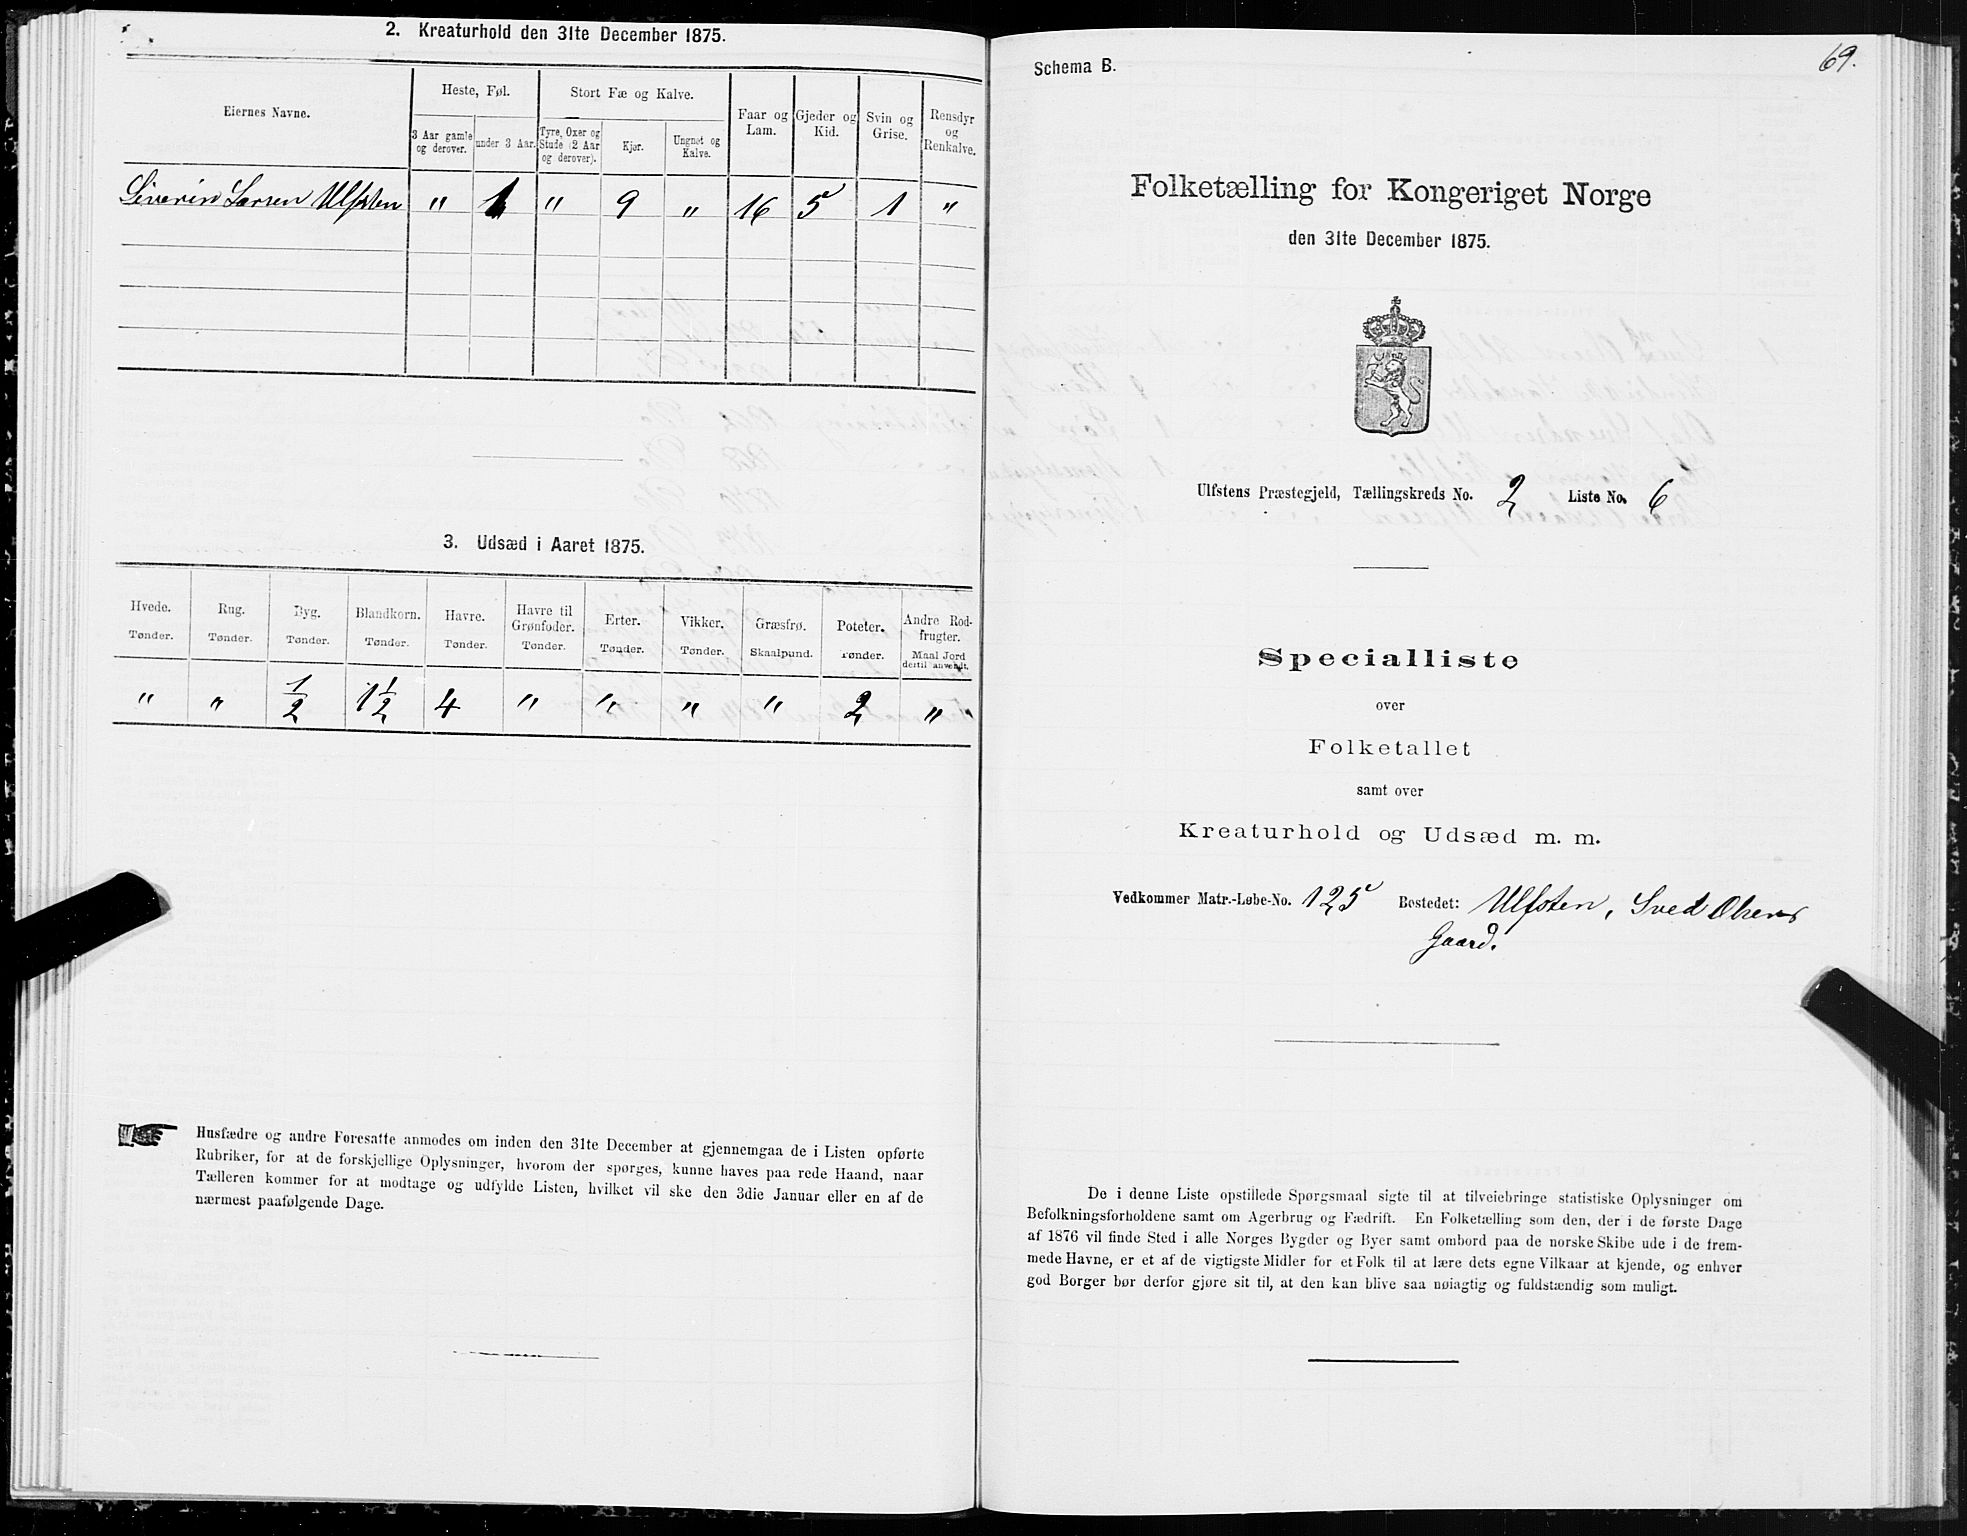 2. Kreaturhold den 31te December 1875.
Eiernes Navne.
Heste, Føl.
Stort Fæ og Kalve.
Faar og Lam.
Gjeder og Kid.
Svin og Grise.
Rensdyr og Renkalve.
3 Aar gamle og derover.
under 3 Aar.
Tyre, Oxer og Stude (2 Aar og derover).
Kjør.
Ungnøt og Kalve.
Siverin Larsen Ulfsten " 1 " 9 " 16 5 1 "
3. Udsæd i Aaret 1875.
Hvede. Rug. Byg. Blandkorn. Havre. Havre til Grønfoder. Erter. Vikker. Græsfrø. Poteter. Andre Rodfrugter.
Tønder. Tønder. Tønder. Tønder. Tønder. Tønder. Tønder. Tønder. Skaalpund. Tønder. Maal Jord dertil anvendt.
" " 1/2 1 1/2 4 " " " " 2 "
Husfædre og andre Foresatte anmodes om inden den 31te December at gjennemgaa de i Listen opførte
Rubriker, for at de forskjellige Oplysninger, hvorom der spørges, kunne haves paa rede Haand, naar
Tælleren kommer for at modtage og udfylde Listen, hvilket vil ske den 3die Januar eller en af de
nærmest paafølgende Dage.
69.
Schema B.
Folketælling for Kongeriget Norge
den 31te December 1875.
Ulfstens Præstegjeld, Tællingskreds No. 2 Liste No. 6
Specialliste
over
Folketallet
samt over
Kreaturhold og Udsæd m. m.
Vedkommer Matr.-Løbe-No. 125 Bostedet: Ulfsten, Sved Olsens
Gaard.
De i denne Liste opstillede Spørgsmaal sigte til at tilveiebringe statistiske Oplysninger om
Befolkningsforholdene samt om Agerbrug og Fædrift. En Folketælling som den, der i de første Dage
af 1876 vil finde Sted i alle Norges Bygder og Byer samt ombord paa de norske Skibe ude i de frem-
mede Havne, er et af de vigtigste Midler for et Folk til at lære dets egne Vilkaar at kjende, og enhver
god Borger bør derfor gjøre sit til, at den kan blive saa nøiagtig og fuldstændig som muligt.